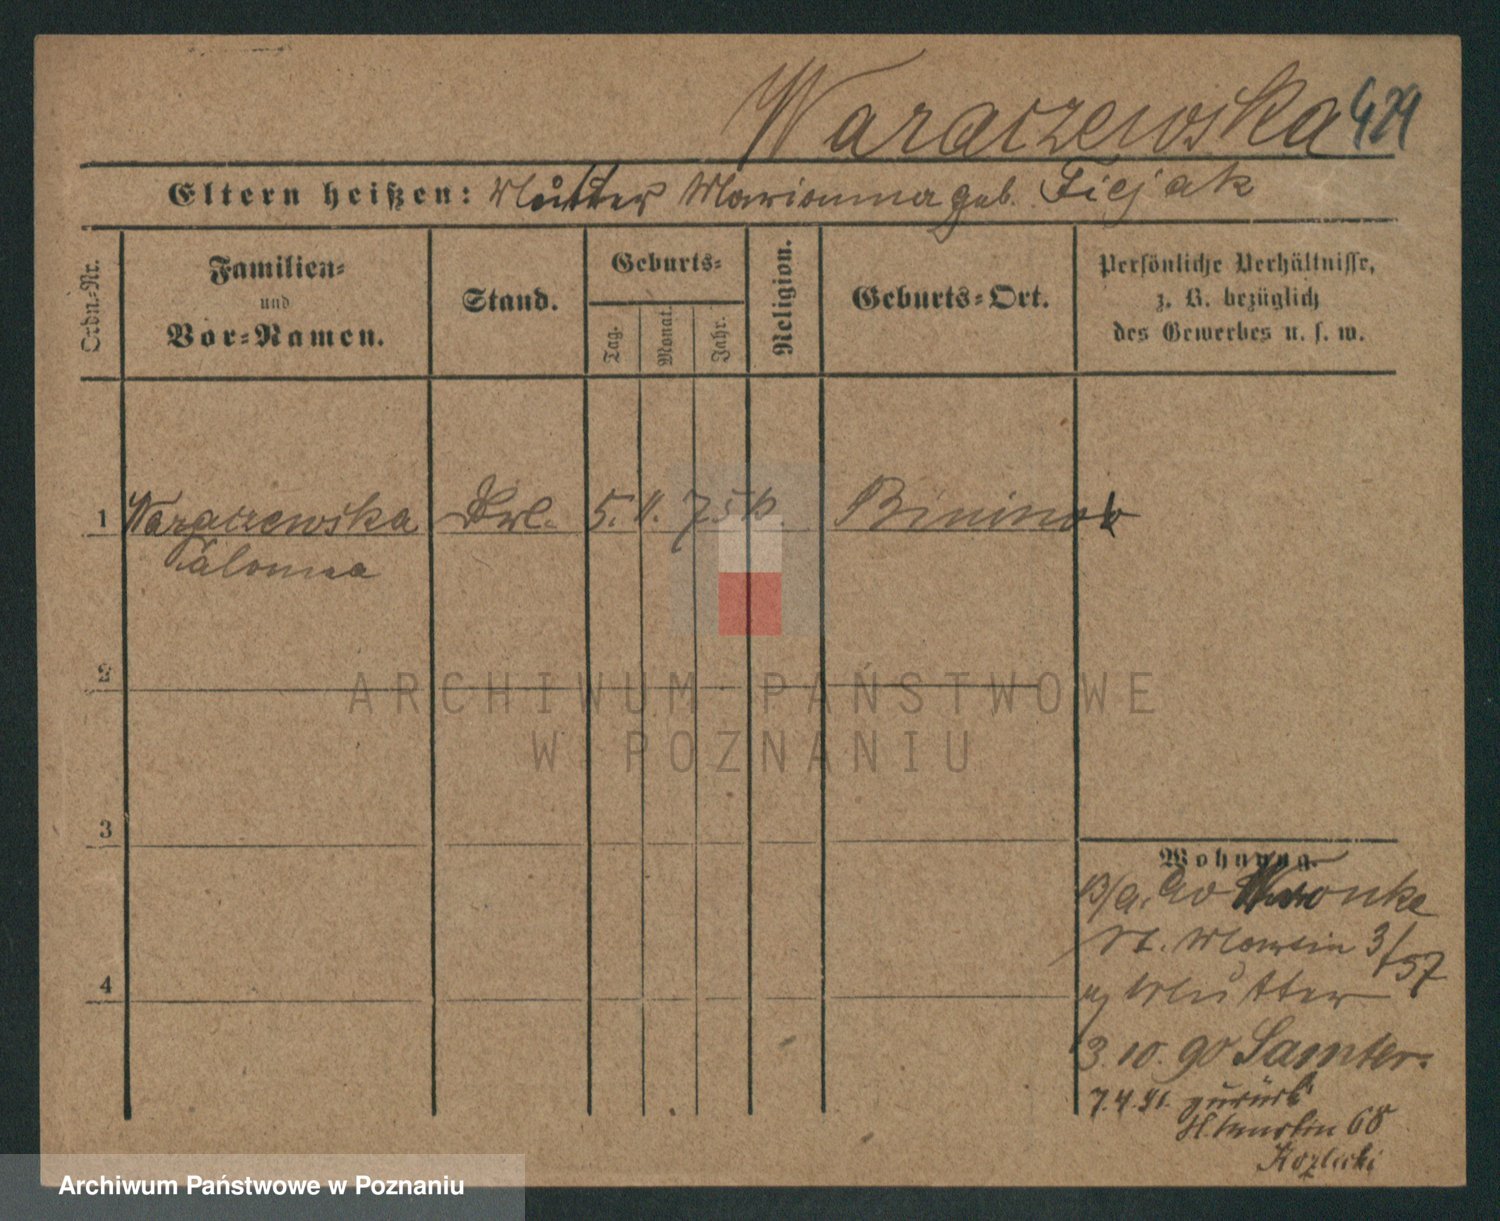 Waraczewska 429
Eltern heißen: Mutter Marianna geb. Ficjak
Ordn.-Nr.
Familien-
und
Vor-Namen.
Stand.
Geburts-
Tag.
Monat.
Jahr.
Religion.
Geburts-Ort.
Persönliche Verhältnisse,
z. B. bezüglich
des Gewerbes u. s. w.
1 Waraczewska 5. 11. 75 k Bininow
Salomea
2
3
4
Wohnung.
Wronke
St. Martin 3/57
Mutter
3.10.90 Samter.
7.4.91. zurück
St. Martin 68
Kozlicki
ARCHIWUM PAŃSTWOWE
W POZNANIU
Archiwum Państwowe w Poznaniu